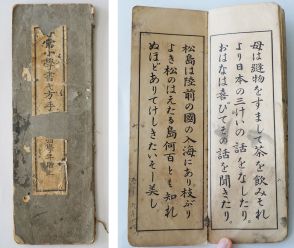 常小學書キ方手
母は縫物をすまして茶を飲みそれ
より日本の三けいの話をなしたり。
おはなは喜びてその話を聞きたり。
松島は陸前の國の入海にあり枝ぶり
よき松のはえたる島何百とも知れ
ぬほどありてけしきたいそー美し